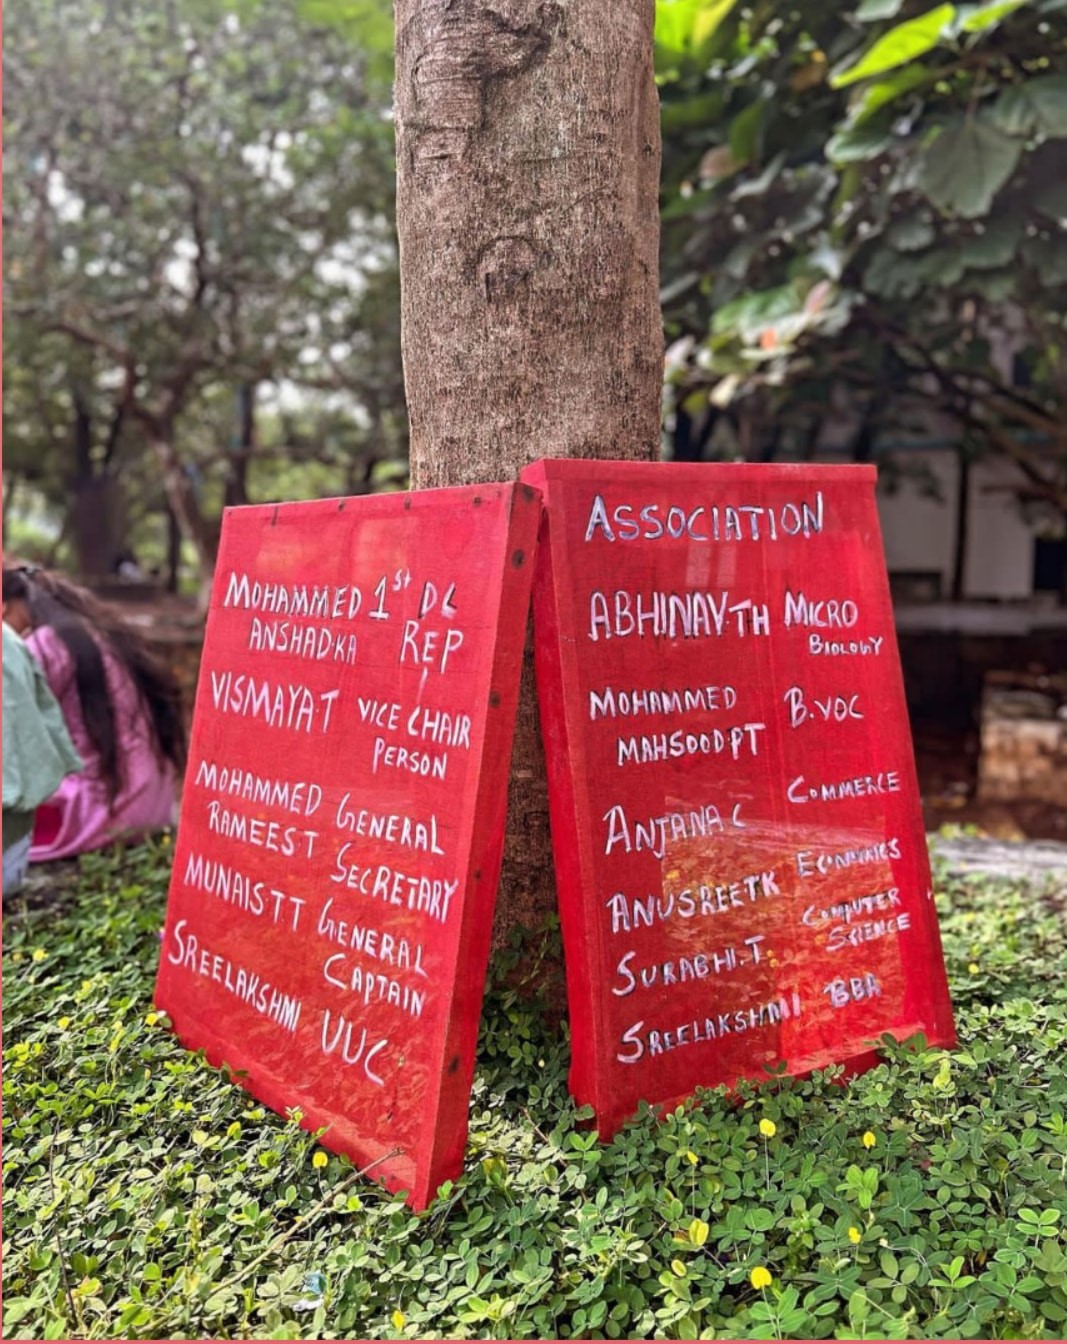 MOHAMMED 1st DC
ANSHAD·KA REP
VISMAYA·T VICE CHAIR
PERSON
MOHAMMED GENERAL
RAMEES·T SECRETARY
MUNAIS T T GENERAL
CAPTAIN
SREELAKSHMI UUC
ASSOCIATION
ABHINAV·TH MICRO
BIOLOGY
MOHAMMED B.VOC
MAHSOOD·PT
ANJANA C COMMERCE
ANUSREETK ECONOMICS
SURABHI.T. COMPUTER
SCIENCE
SREELAKSHMI BBA